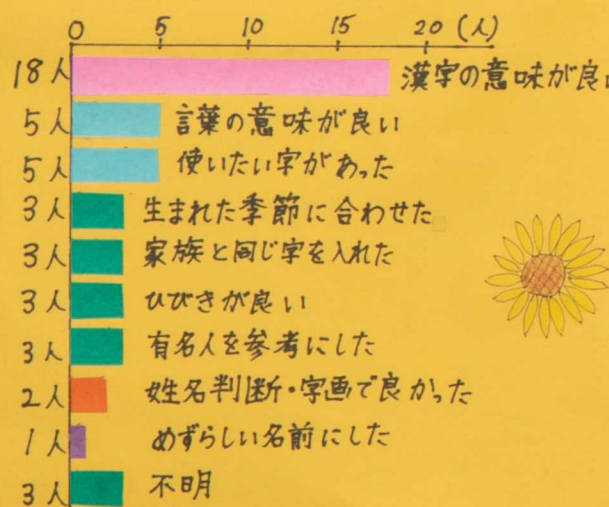 0 5 10 15 20 (人)
18人 漢字の意味が良
5人 言葉の意味が良い
5人 使いたい字があった
3人 生まれた季節に合わせた
3人 家族と同じ字を入れた
3人 ひびきが良い
3人 有名人を参考にした
2人 姓名判断・字画で良かった
1人 めずらしい名前にした
3人 不明